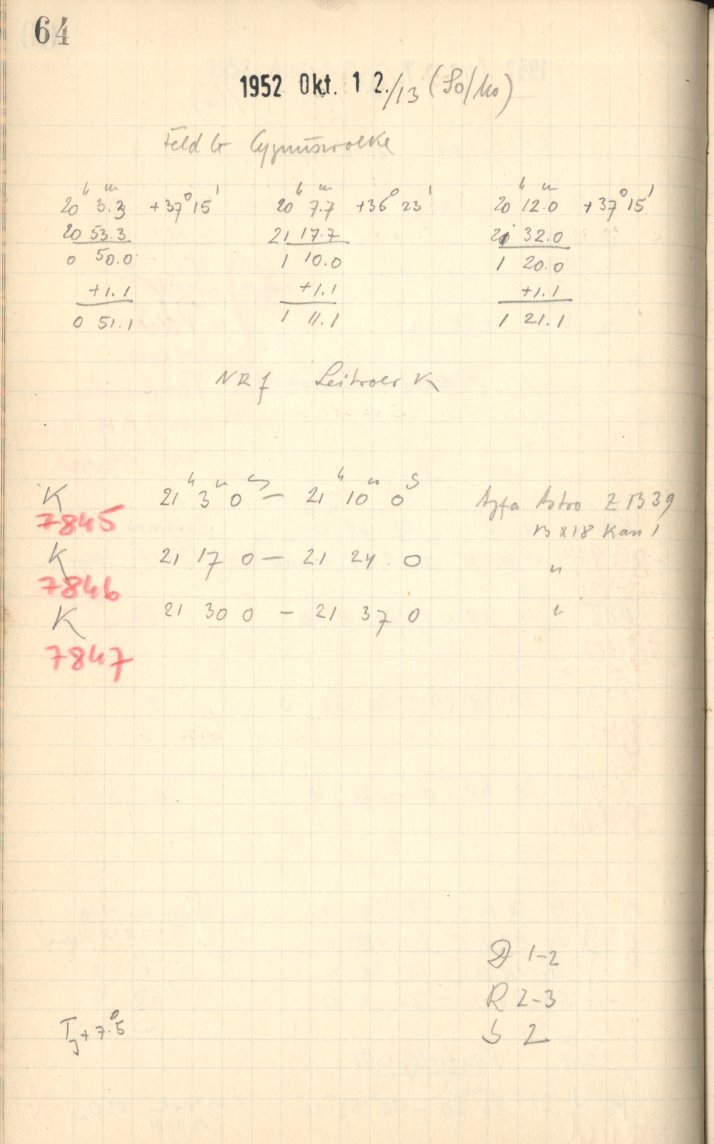 64
1952 Okt. 12./13 (So/Mo)
Feld Cygnuswolke
20h 3.3m +37° 15' 20h 7.7m +36° 23' 20h 12.0m +37° 15'
20 53.3 21 17.7 21 32.0
0 50.0 1 10.0 1 20.0
+1.1 +1.1 +1.1
0 51.1 1 11.1 1 21.1
K
K 21h 3m 0s – 21h 10m 0s Agfa Astro Z 1339
7845 13 x 18 Kan 1
K 21 17 0 – 21 24 0 "
7846
K 21 30 0 – 21 37 0 "
7847
D 1–2
R 2–3
S 2
+7.°5